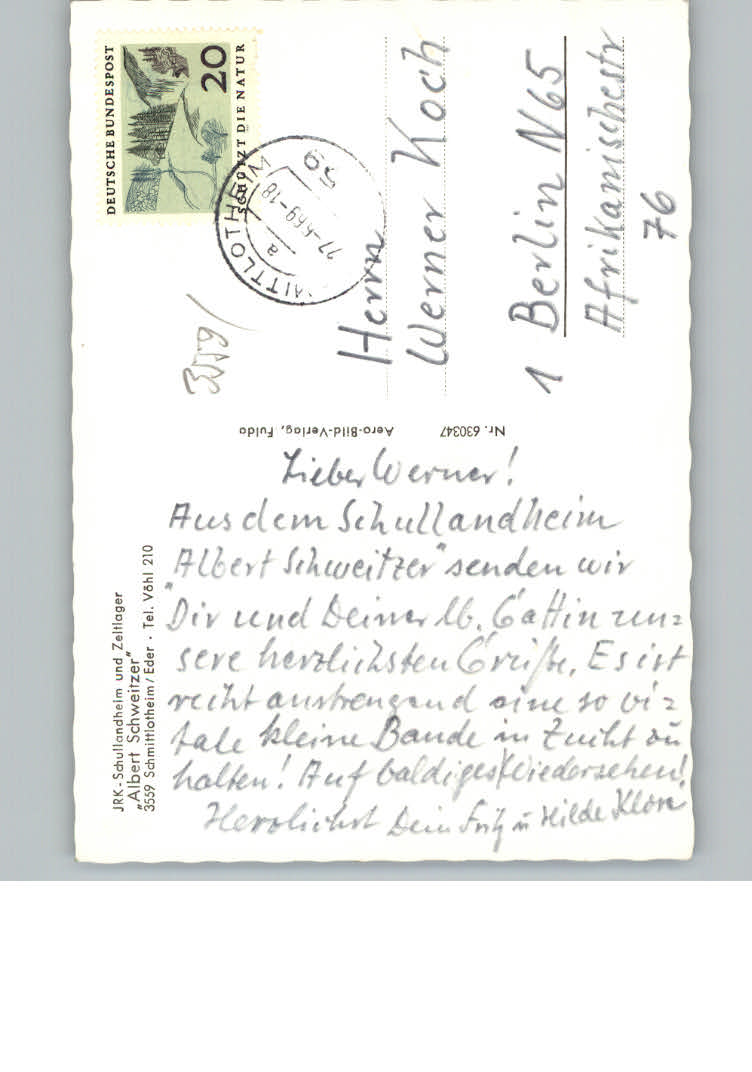 DEUTSCHE BUNDESPOST
20
SCHÜTZT DIE NATUR
59
a
-6.69-18
3559/
Herrn
Werner Koch
1 Berlin N65
Afrikanischestr
76
Aero-Bild-Verlag, Fulda
Nr. 630347
JRK-Schullandheim und Zeltlager
„Albert Schweitzer"
3559 Schmittlotheim/Eder · Tel. Vöhl 210
Lieber Werner!
Aus dem Schullandheim
"Albert Schweitzer" senden wir
Dir und Deiner lb. Gattin un=
sere herzlichsten Grüße. Es ist
recht anstrengend eine so vi=
tale kleine Bande in Zucht zu
halten! Auf baldiges Wiedersehen!
Herzlichst Dein Fritz u Hilde